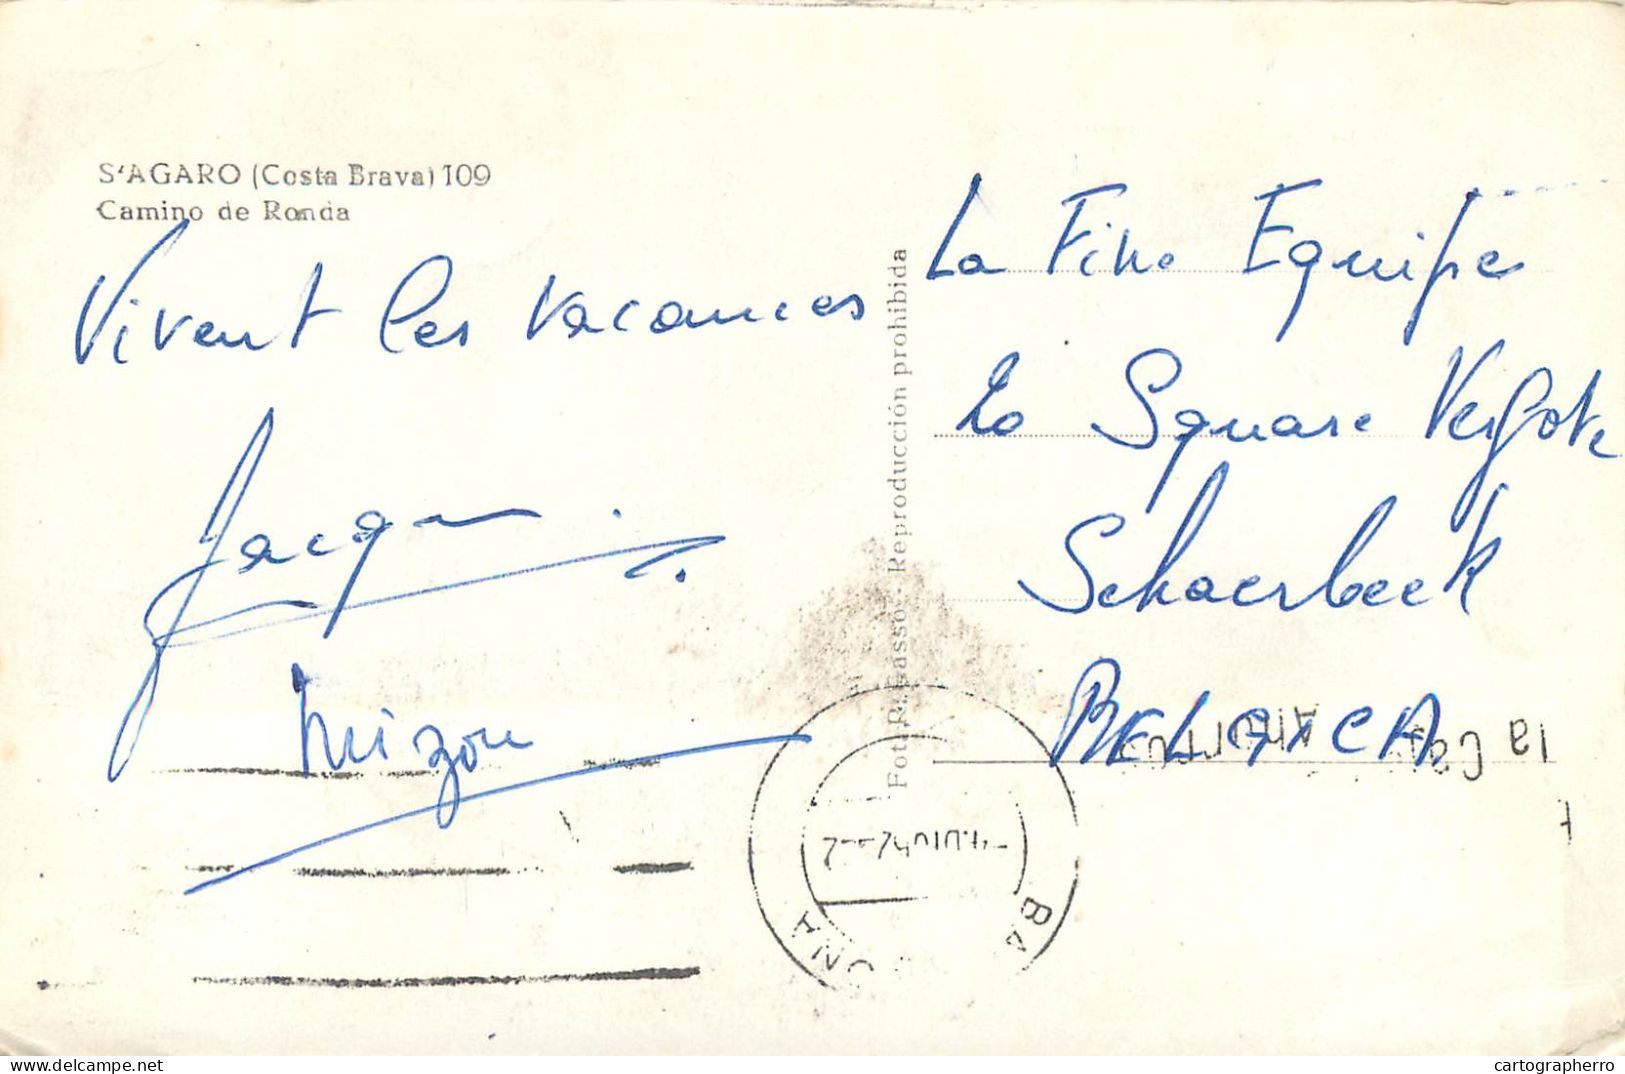 S'AGARO (Costa Brava) 109
Camino de Ronda
Vivent les vacances
Mizou
Foto R. Gasso - Reproducción prohibida
La Fine Equipe
Square Vergote
Schaerbeek
BELGICA
la Ca
cartographerro